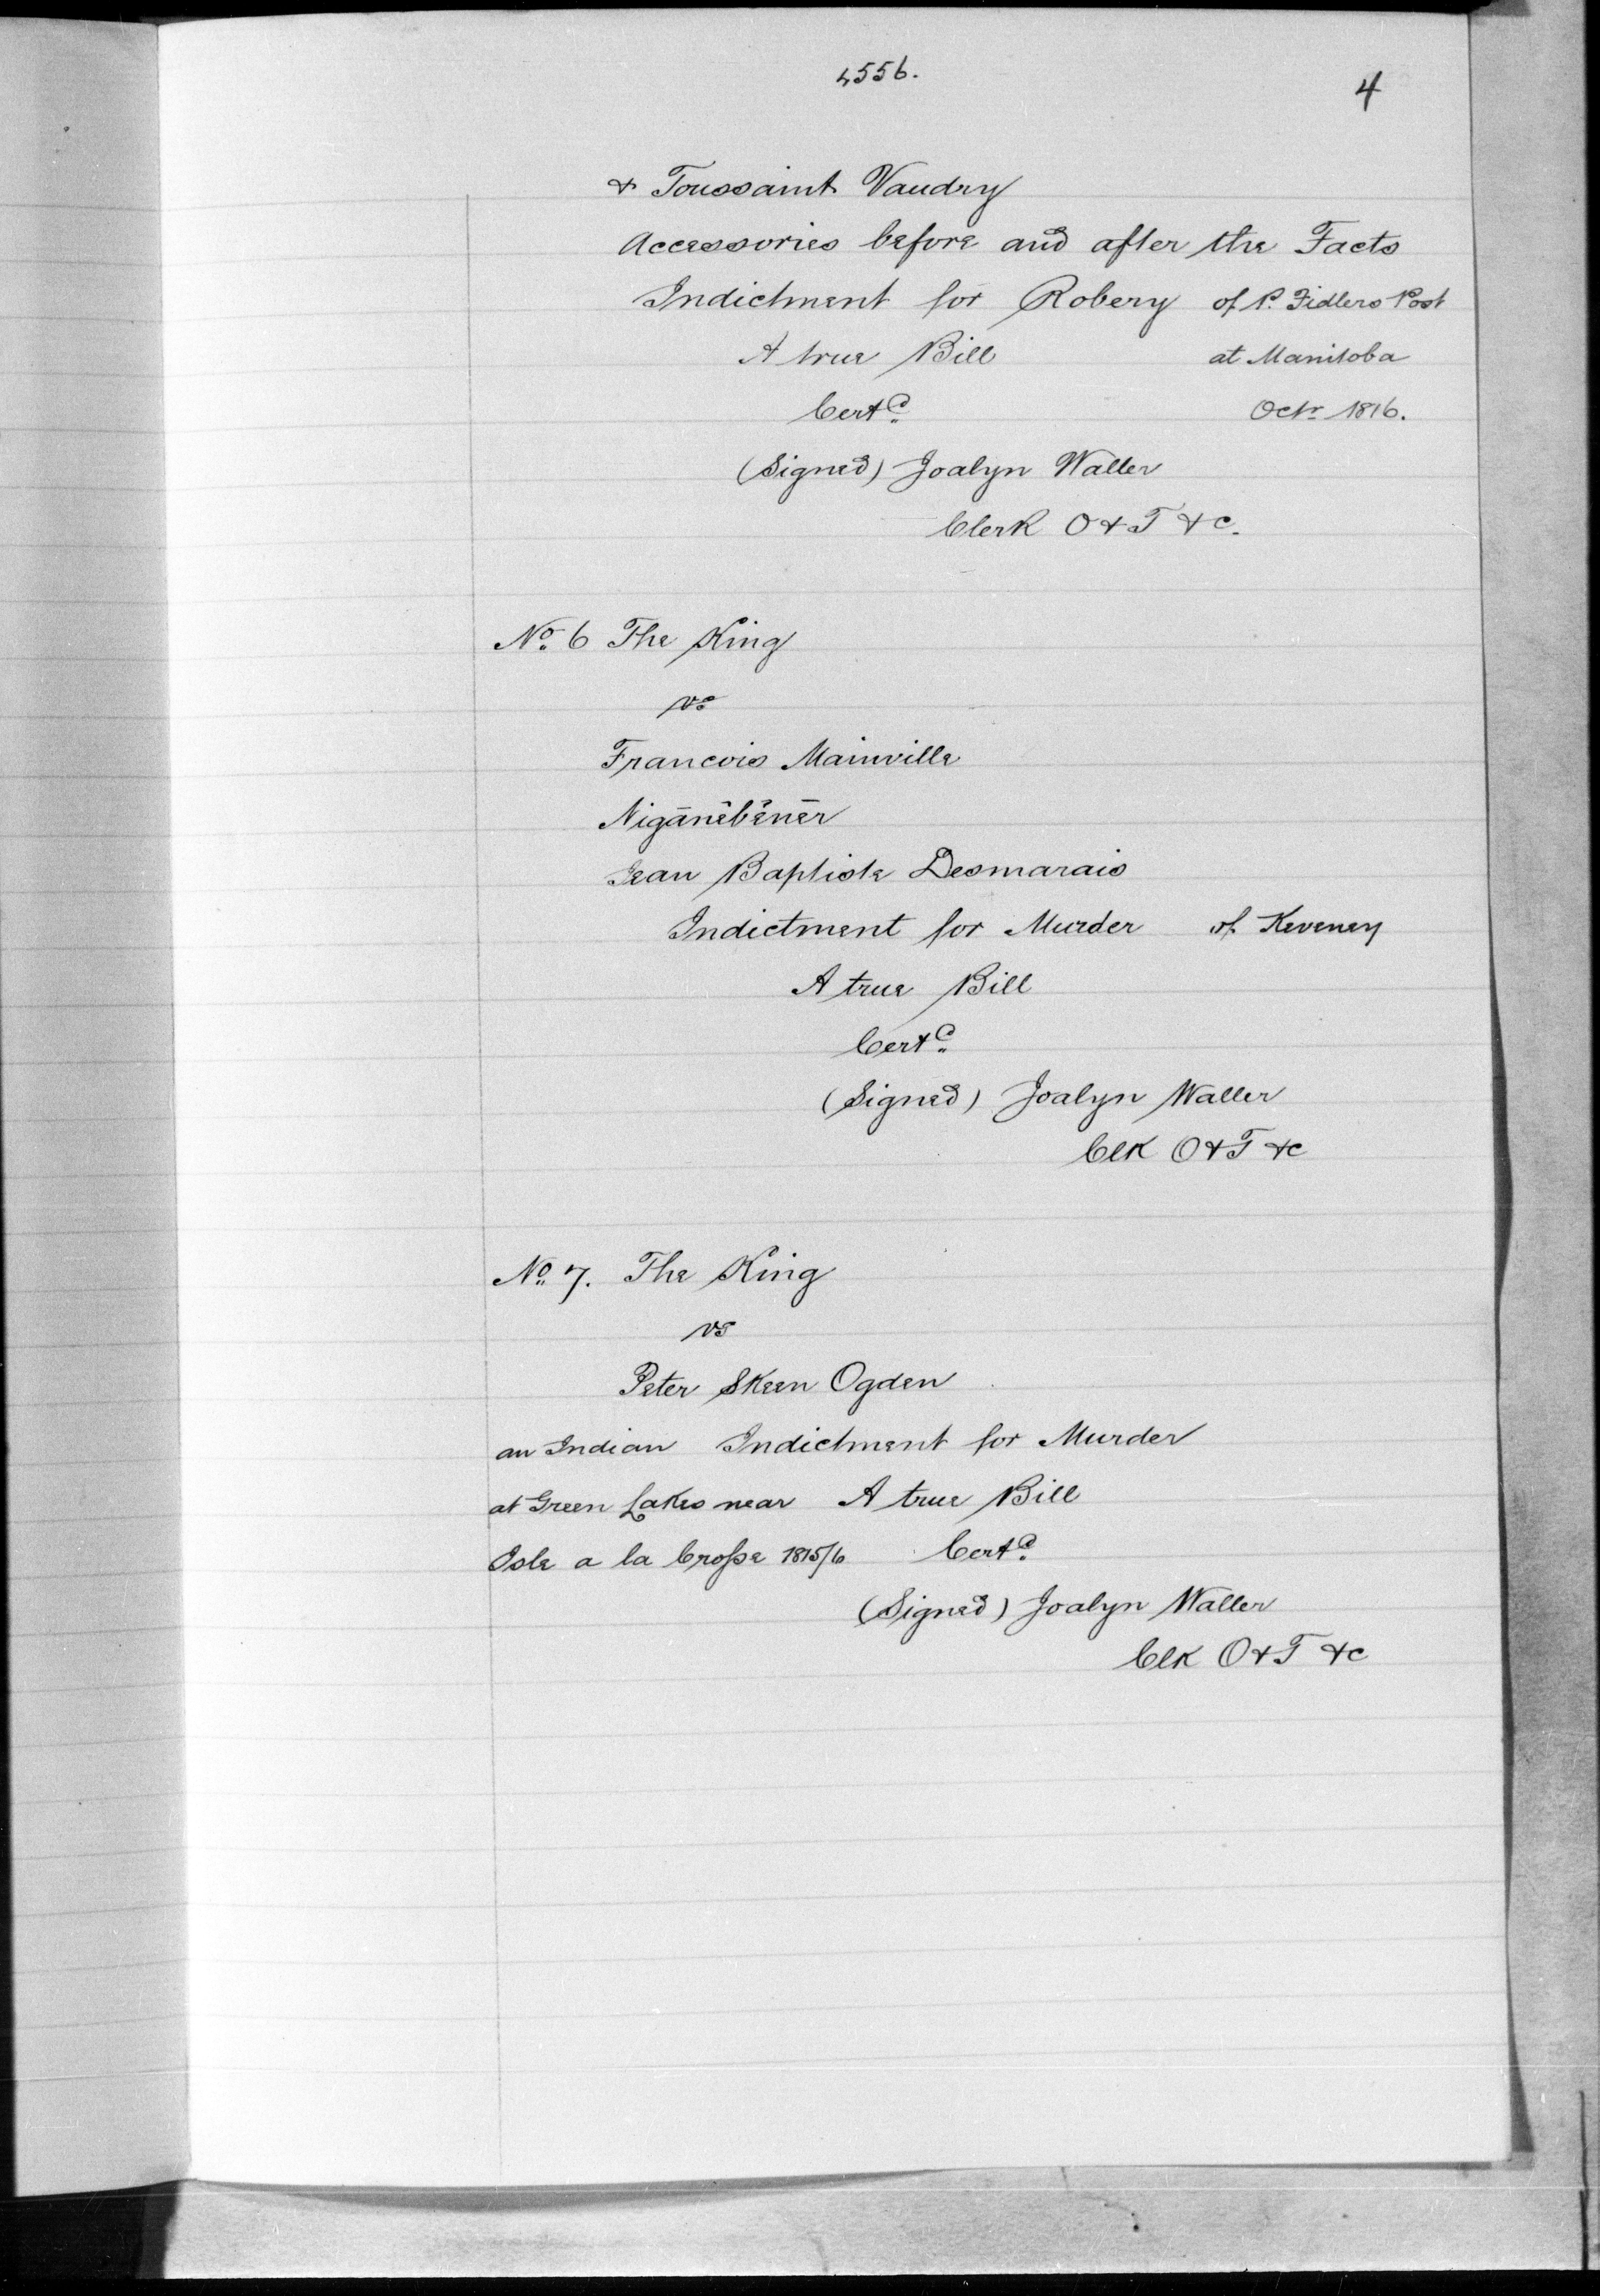 4556.
4
& Toussaint Vaudry
Accessories before and after the Facts
Indictment for Robery of P. Fidlers Post
A true Bill at Manitoba
Certd. Octr 1816.
(Signed) Joalyn Waller
Clerk O & T &c.
No. 6 The King
vs
Francois Mainville
Nigānēbēnēr
Jean Baptiste Desmarais
Indictment for Murder of Keveney
A true Bill
Certd.
(Signed) Joalyn Waller
Clk O & T &c
No. 7. The King
vs
Peter Skeen Ogden
an Indian Indictment for Murder
at Green Lakes near A true Bill
Isle a la Crosse 1815/6 Certd.
(Signed) Joalyn Waller
Clk O & T &c